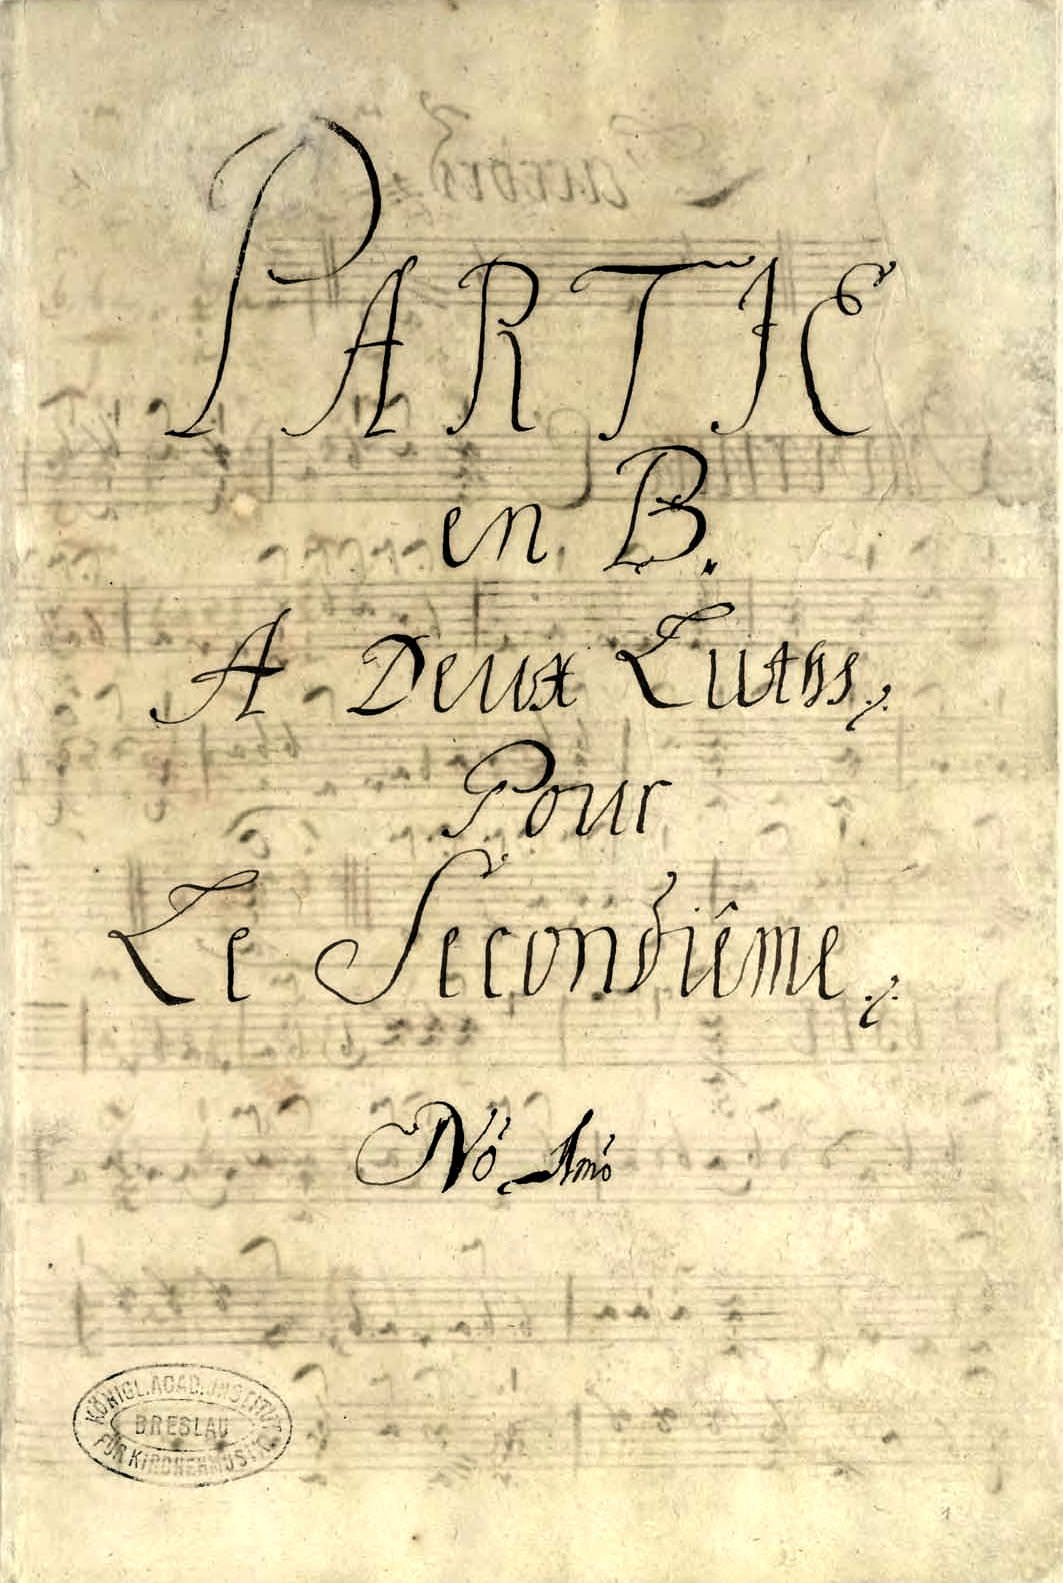 PARTIE
en B.
A Deux Luths
Pour
Le Secondiême
Nò
KÖNIGL. ACAD. INSTITUT
BRESLAU
FÜR KIRCHENMUSIK
1